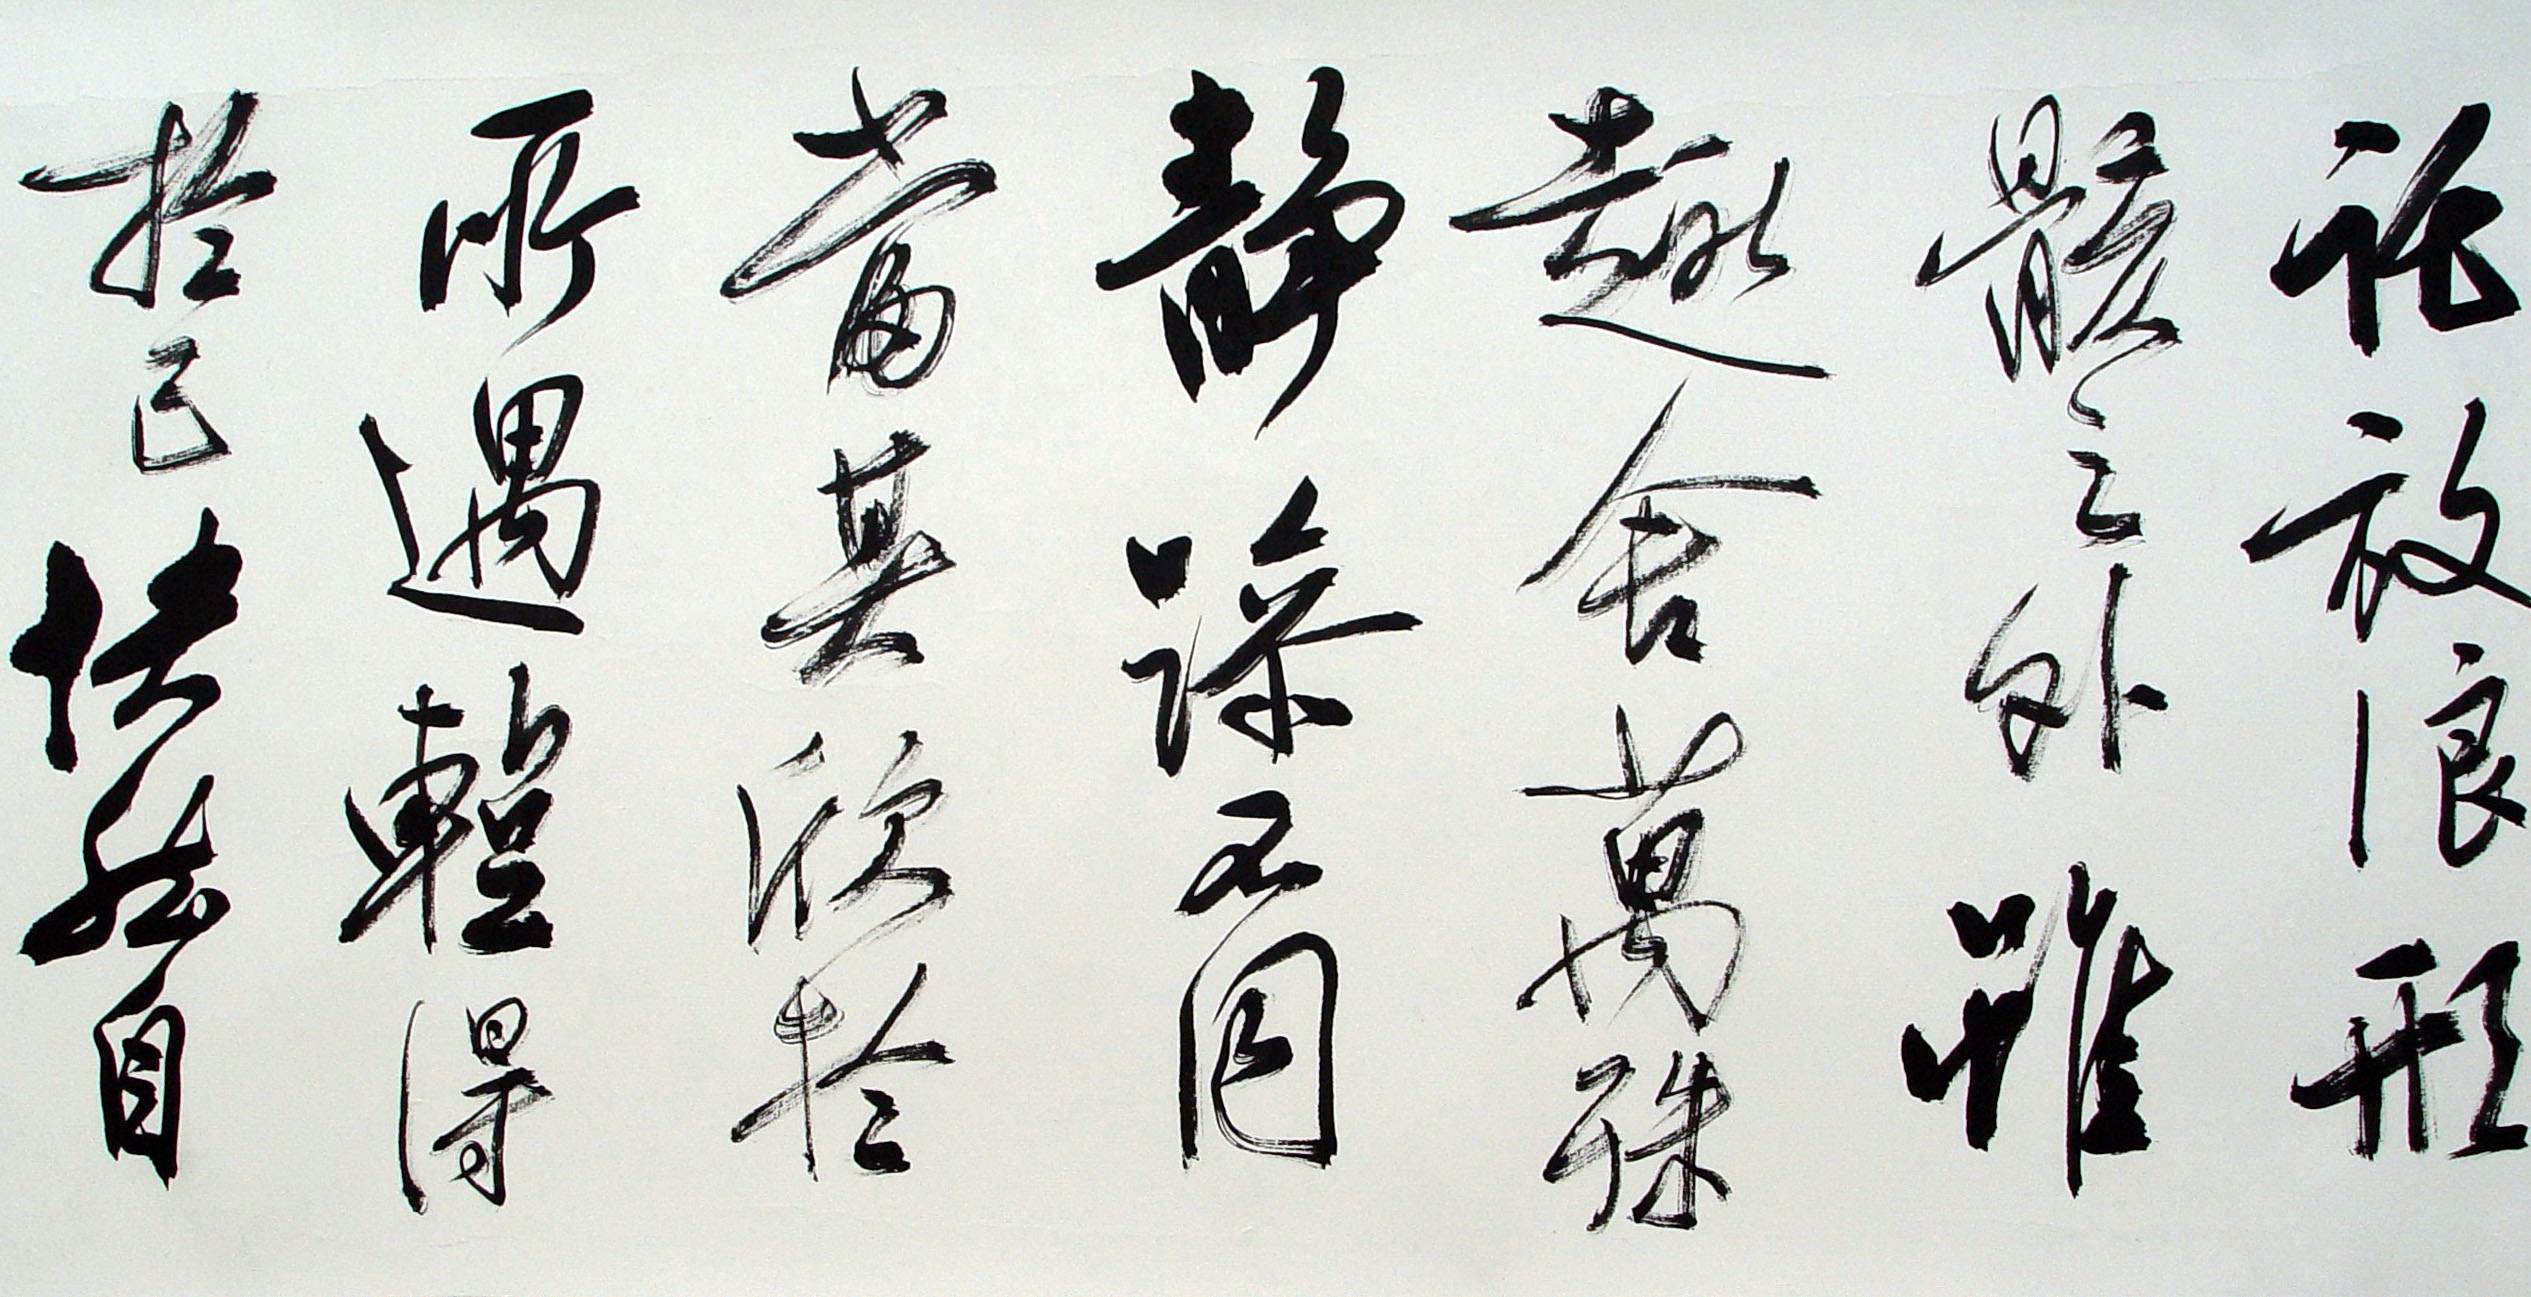 託放浪形
骸之外雖
趣舍萬殊
靜躁不同
當其欣於
所遇輕得
於己快然自